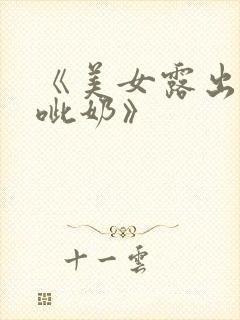 《美女露出
呲奶》
十一雲